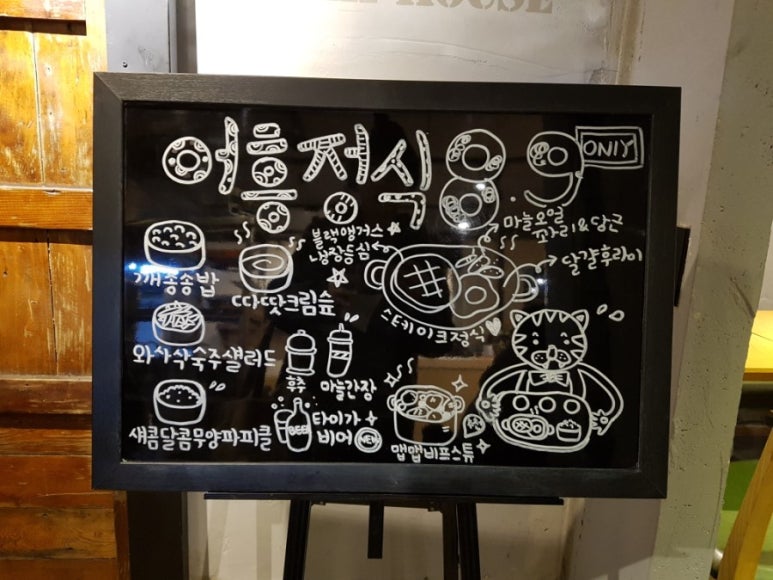 HOUSE
어흥정식 8.9 ONLY
블랙앵거스
냉장등심
마늘오일
꽈리&당근
달걀후라이
깨송송밥
따땃크림슾
스테이크정식
와사삭숙주샐러드
후추
마늘간장
새콤달콤무양파피클
타이가
비어 NEW
BEER
맵맵비프스튜